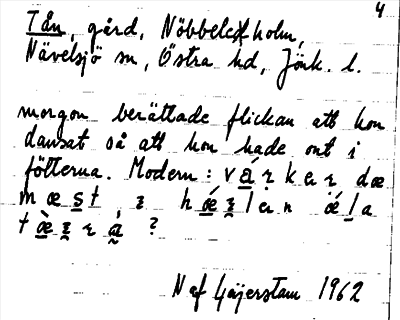 4
Tån, gård, Nöbbele holm,
Nävelsjö sn, Östra hd, Jönk. l.
morgon berättade flickan att hon
dansat så att hon hade ont i
fötterna. Modern: varkar dæ
mæst
?
N af Geijerstam 1962